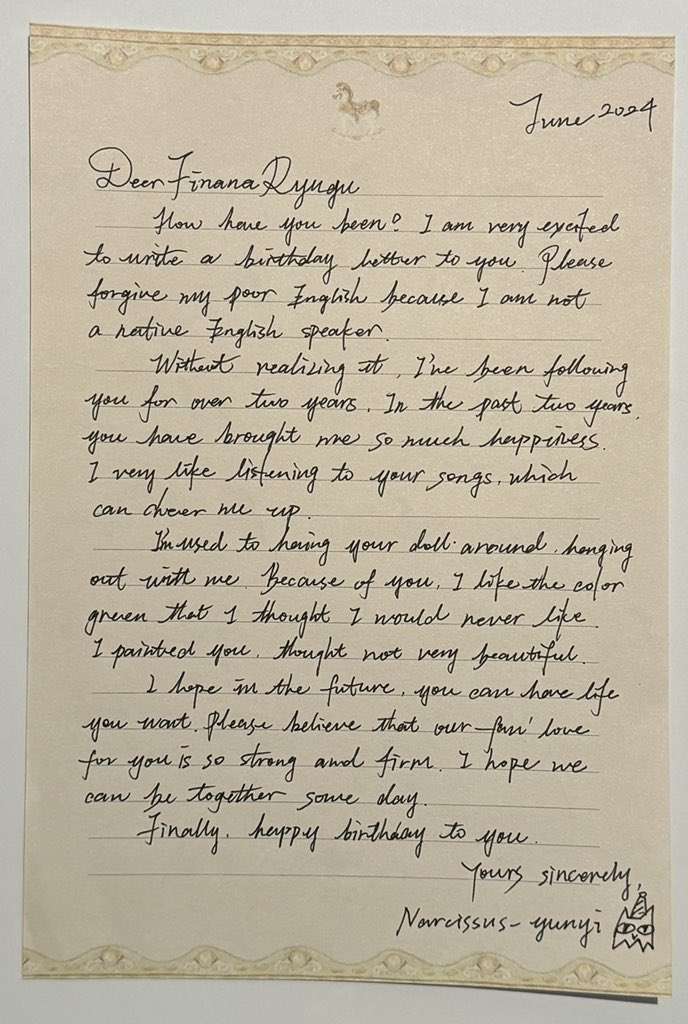 June 2024
Deer Finana Ryugu
How have you been? I am very excited
to write a birthday letter to you. Please
forgive my poor English because I am not
a native English speaker.
Without realizing it, I've been following
you for over two years. In the past two years,
you have brought me so much happiness.
I very like listening to your songs, which
can cheer me up.
I'm used to having your doll around, hanging
out with me. Because of you, I like the color
green that I thought I would never like.
I painted you, thought not very beautiful.
I hope in the future, you can have life
you want. Please believe that our fan' love
for you is so strong and firm. I hope we
can be together some day.
Finally, happy birthday to you.
Yours sincerely,
Narcissus-yunyi